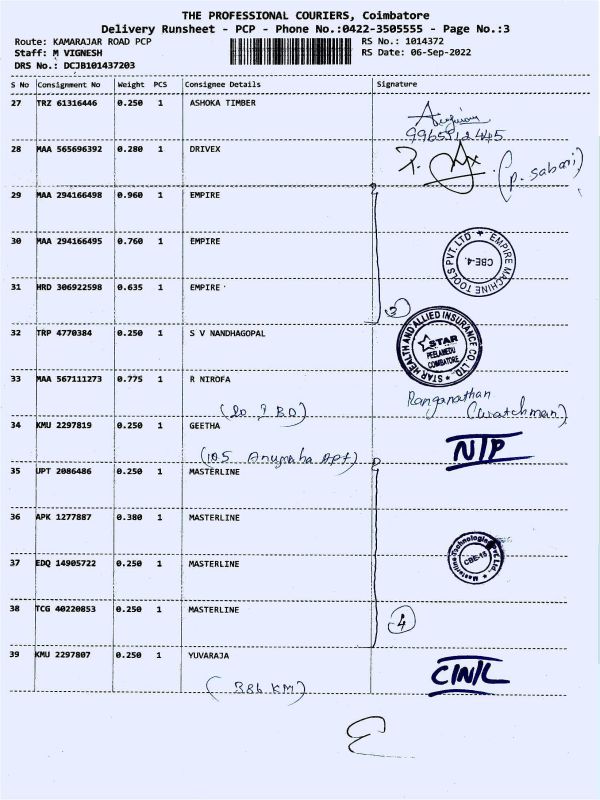 THE PROFESSIONAL COURIERS, Coimbatore
Delivery Runsheet - PCP - Phone No.:0422-3505555 - Page No.:3
Route: KAMARAJAR ROAD PCP RS No.: 1014372
Staff: M VIGNESH RS Date: 06-Sep-2022
DRS No.: DCJB101437203
S No Consignment No Weight PCS Consignee Details Signature
27 TRZ 61316446 0.250 1 ASHOKA TIMBER
28 MAA 565696392 0.280 1 DRIVEX
(P. Sabari)
29 MAA 294166498 0.960 1 EMPIRE
30 MAA 294166495 0.760 1 EMPIRE
EMPIRE MACHINE TOOLS PVT. LTD. CBE-4.
31 HRD 306922598 0.635 1 EMPIRE
3
32 TRP 4770384 0.250 1 S V NANDHAGOPAL
STAR HEALTH AND ALLIED INSURANCE CO. LTD. STAR PEELAMEDU COIMBATORE
33 MAA 567111273 0.775 1 R NIROFA
Ranganathan
(watchman)
34 KMU 2297819 0.250 1 GEETHA
(105 Apt) N/P
35 UPT 2086486 0.250 1 MASTERLINE
36 APK 1277887 0.380 1 MASTERLINE
37 EDQ 14905722 0.250 1 MASTERLINE
Masterline Technologies Pvt Ltd. CBE-15
38 TCG 40220853 0.250 1 MASTERLINE
4
39 KMU 2297807 0.250 1 YUVARAJA
C/N/L